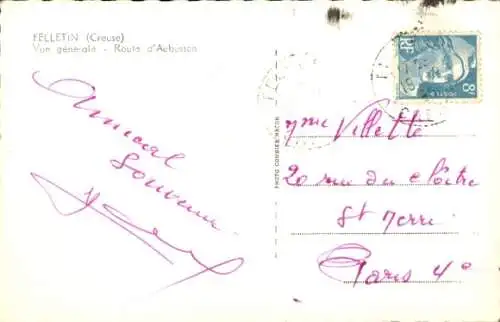 FELLETIN (Creuse)
Vue générale - Route d'Aubusson
Amical
Souvenir
PHOTO COMBIER MACON
RF
POSTES
8F
Mme Villette
20 rue du Cloître
St Merri
Paris 4e